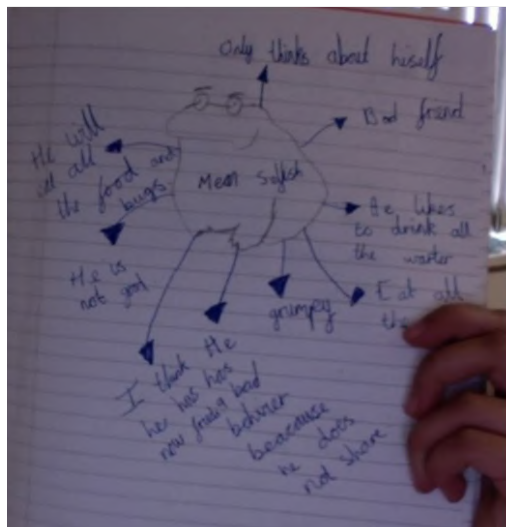 Only thinks about hiself
Bad friend
He will
eat all
the food and
bugs
Mean Selfish
He likes
to drink all
the warter
He is
not good
grumpy
Eat all
the
I think
he has
now frinds
He
has
a bad
behiver
beacause
he does
not share